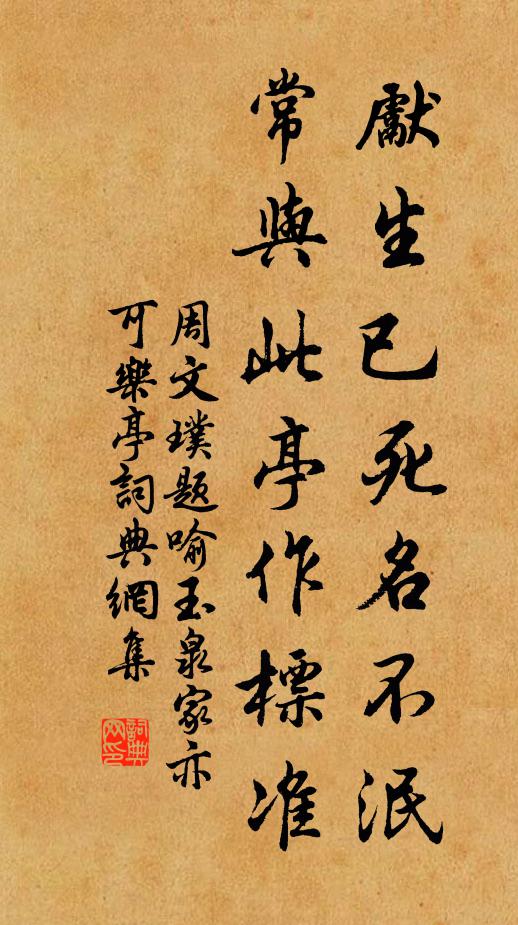 獻生已死名不泯
常與此亭作標准
周文璞題喻玉泉家亦
可樂亭詞典網集
詞典
网印